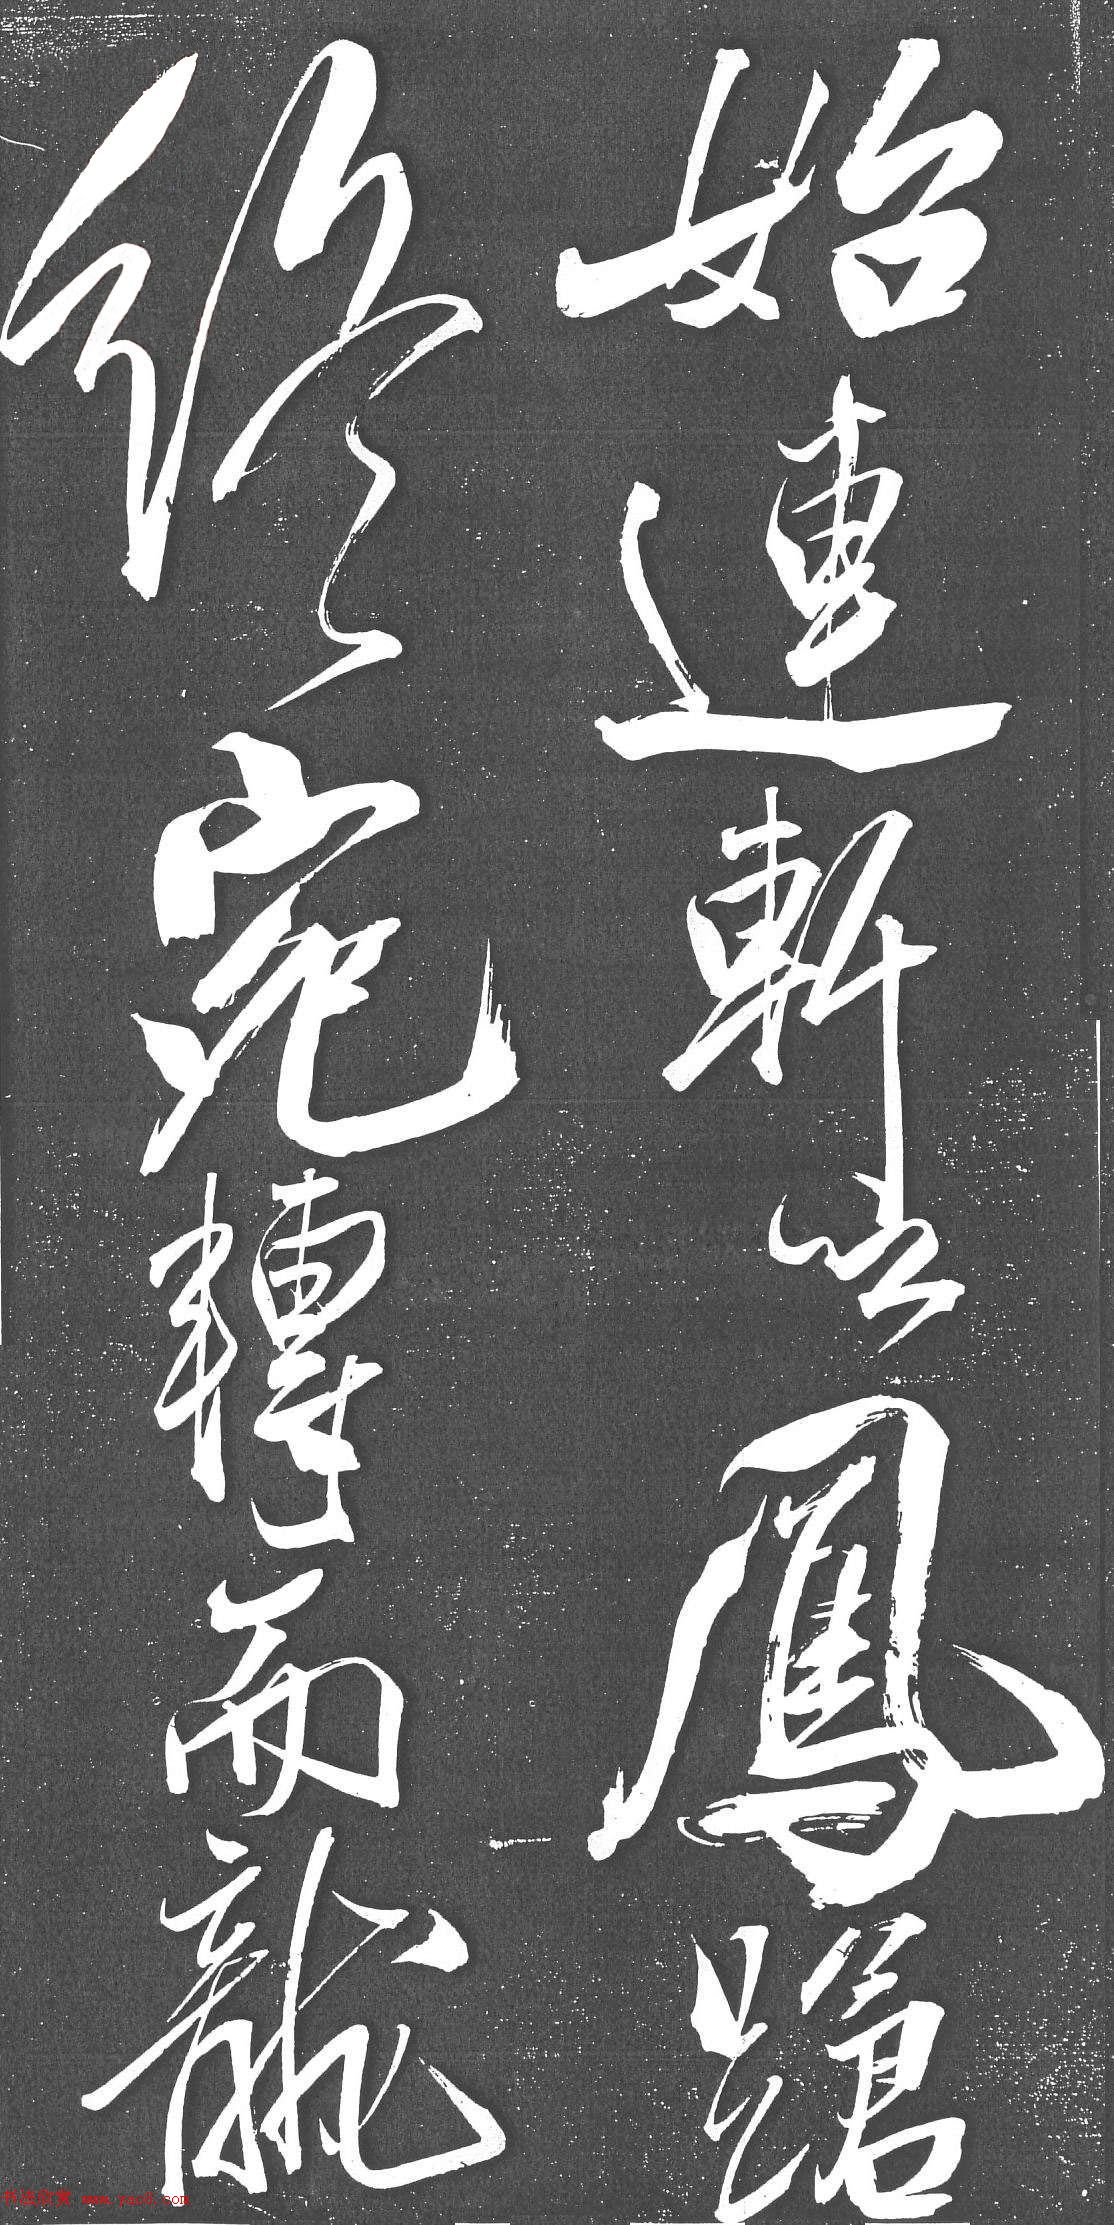 始連軒以鳳蹌
終宛轉而龍
书法欣赏 www.yac8.com